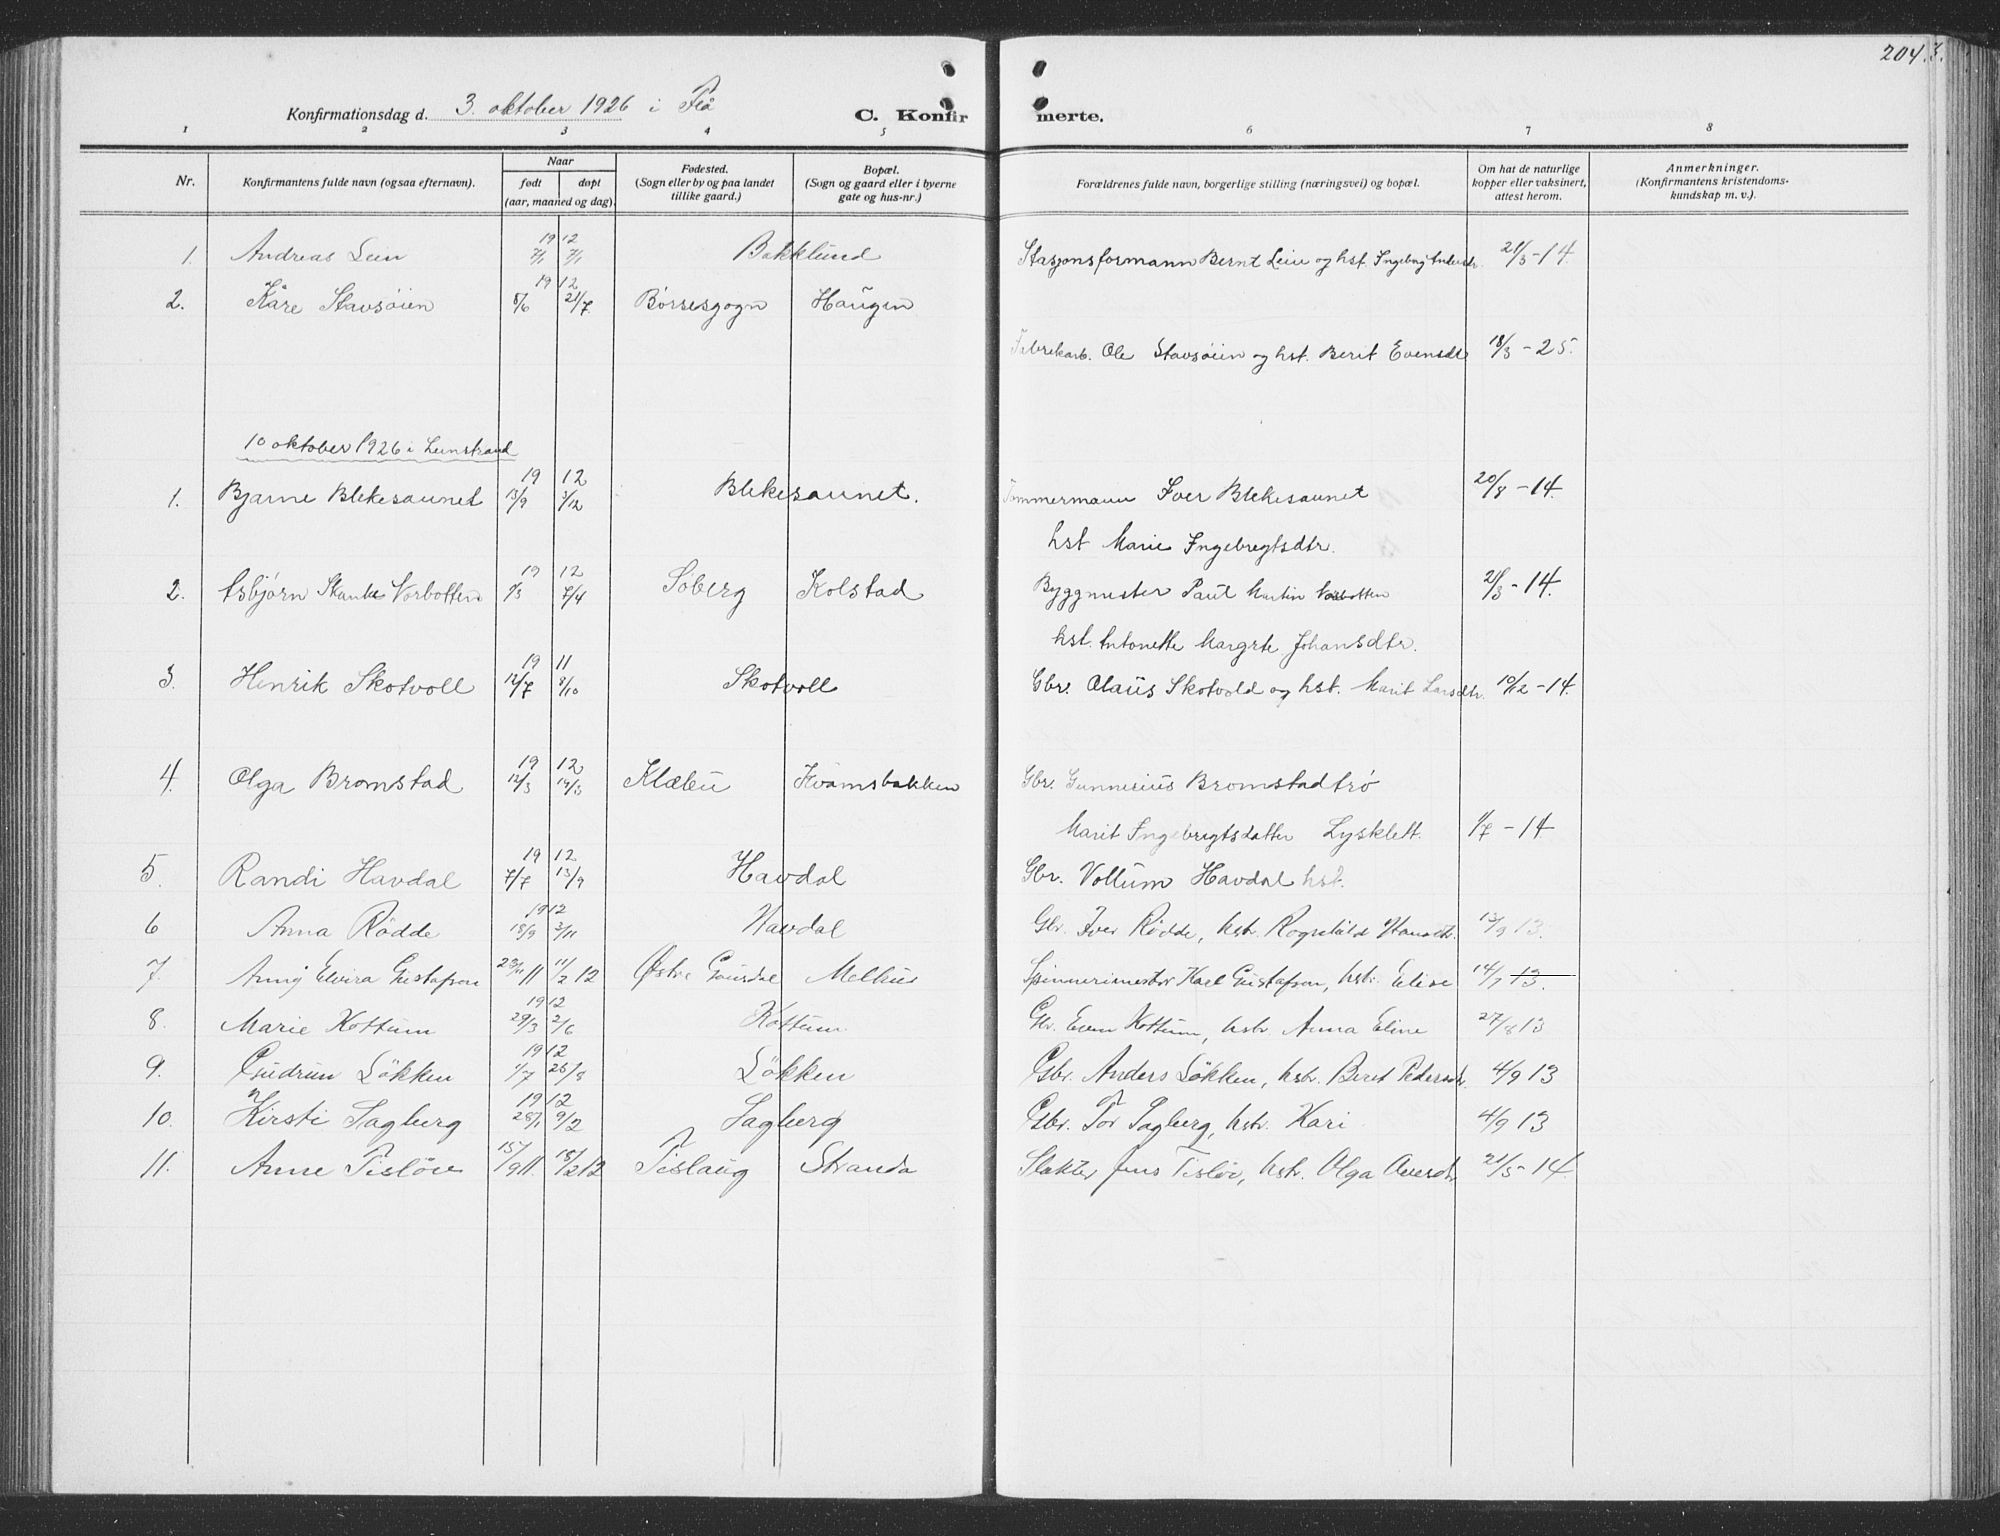 204.
Konfirmationsdag d. 3. oktober 1926 i Flå
C. Konfirmerte.
1 2 3 4 5 6 7 8
Nr.
Konfirmantens fulde navn (ogsaa efternavn).
Naar
født døpt
(aar, maaned og dag).
Fødested.
(Sogn eller by og paa landet
tillike gaard.)
Bopæl.
(Sogn og gaard eller i byerne
gate og hus-nr.)
Forældrenes fulde navn, borgerlige stilling (næringsvei) og bopæl.
Om hat de naturlige
kopper eller vaksinert,
attest herom.
Anmerkninger.
(Konfirmantens kristendoms-
kundskap m. v.).
19 12
1. Andreas Lein 7/1 7/1 Bakklund Stasjonsformann Bernt Lein og hst. 21/3-14.
19 12
2. Kåre Stavsøien 8/6 21/7 Børsesogn Haugen
Fabrikarb. Ole Stavsøien og hst. Berit Evensdtr 18/3-25.
10 oktober 1926 i Leinstrand
19 12
1. Bjarne Blekesaunet 13/9 1/12 Blekesaunet. Tømmermann Iver Blekesaunet 20/8-14.
hst Marie Ingebregtsdtr.
19 12
2. Asbjørn Vorbotten 7/4 Søberg Kolstad Byggmester Paul Martin Vorbotten 21/3-14.
hst. Antonette Margrte Johansdtr.
19 11
3. Henrik Skotvoll 12/7 8/10 Skotvoll Gbr. Olaus Skotvold og hst. Marit Larsdtr. 10/12-14.
19 12
4. Olga Bromstad 12/3 19/3 Klæbu Kvamsbakken Gbr. Gunnerius Bromstadtrø
Marit Ingebrigtsdatter Lysklett. 1/7-14
19 12
5. Randi Havdal 7/7 13/9 Havdal Gbr. Vollum Havdal hst.
1912
6 Anna Rødde 18/9 3/11 Havdal Gbr. Iver Rødde, hstr. Ragnhild Hansdtr. 13/9 13.
7. Anny Elvira Gustafson 11 11/2 12 Østre Gausdal Melhus Spinnerimester Karl Gustafson, hstr. Elise 14/7 13.
19 12
8. Marie Kottum 29/3 2/6 Kottum Gbr. Even Kottum, hstr. Anna Eline 27/8 13
19 12
9. Gudrun Løkken 1/7 25/8 Løkken Gbr. Anders Løkken, hstr. Beret Pedersdtr. 4/9 13
19 12
10. Kirsti Fagberg 28/1 9/2 Fagberg Gbr. Tor Fagberg, hstr. Kari 4/9 13
11. Anne Tisløv 15/9 11. 18/2 12 Tislaug Stranda Slakter Jens Tisløv, hstr. Olga 21/5-14.